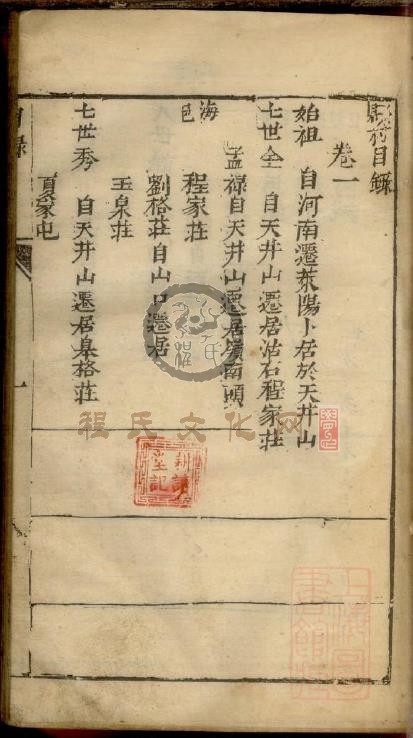 縣村目錄
卷一
始祖 自河南遷萊陽卜居於天井山
七世全 自天井山遷居沽右程家莊
孟祿自天井山遷居嶺南頭
海邑 程家莊
劉格莊自山口遷居
玉泉莊
七世秀 自天井山遷居臯格莊
夏家屯
目錄
一
程氏文化网
上海圖書館藏